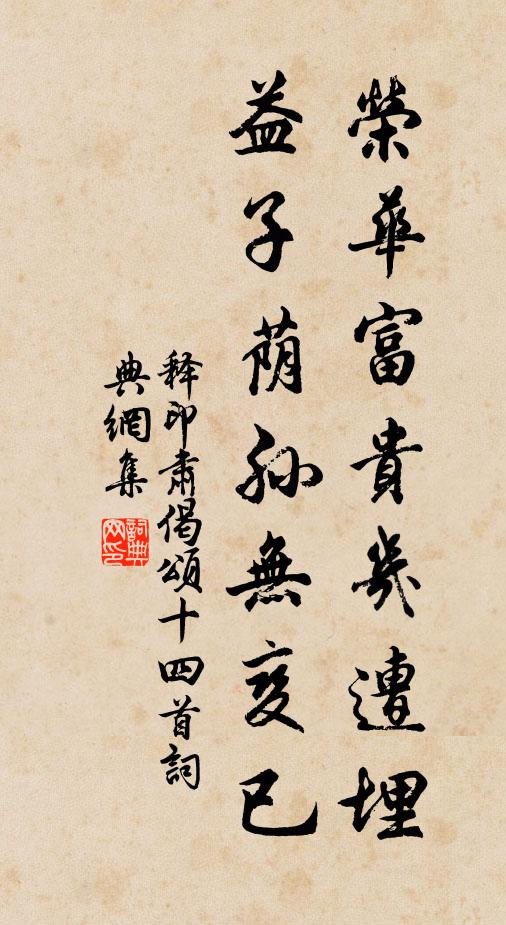 榮華富貴幾遭埋
益子荫孫無变已
释印肅偈頌十四首詞
典網集
詞典網印